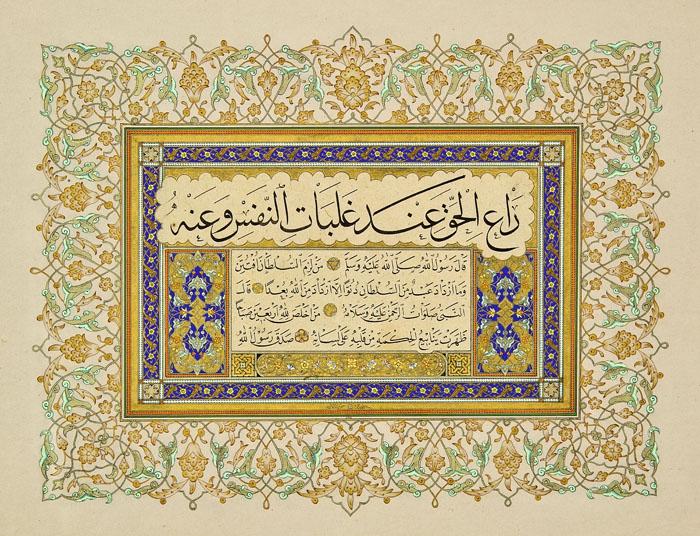 رَاعِ الْحَقَّ عِنْدَ غَلَبَاتِ النَّفْسِ وَعَنْهُ
قَالَ رَسُولُ اللهِ صَلَّى اللهُ عَلَيْهِ وَسَلَّمَ مَنْ لَزِمَ السُّلْطَانَ افْتُتِنَ
وَمَا ازْدَادَ عَبْدٌ مِنَ السُّلْطَانِ دُنُوًّا إِلَّا ازْدَادَ مِنَ اللهِ بُعْدًا قَالَ
النَّبِيُّ صَلَوَاتُ الرَّحْمٰنِ عَلَيْهِ وَسَلَامُهُ مَنْ أَخْلَصَ لِلّٰهِ أَرْبَعِينَ صَبَاحًا
ظَهَرَتْ يَنَابِيعُ الْحِكْمَةِ مِنْ قَلْبِهِ عَلَى لِسَانِهِ صَدَقَ رَسُولُ اللهِ